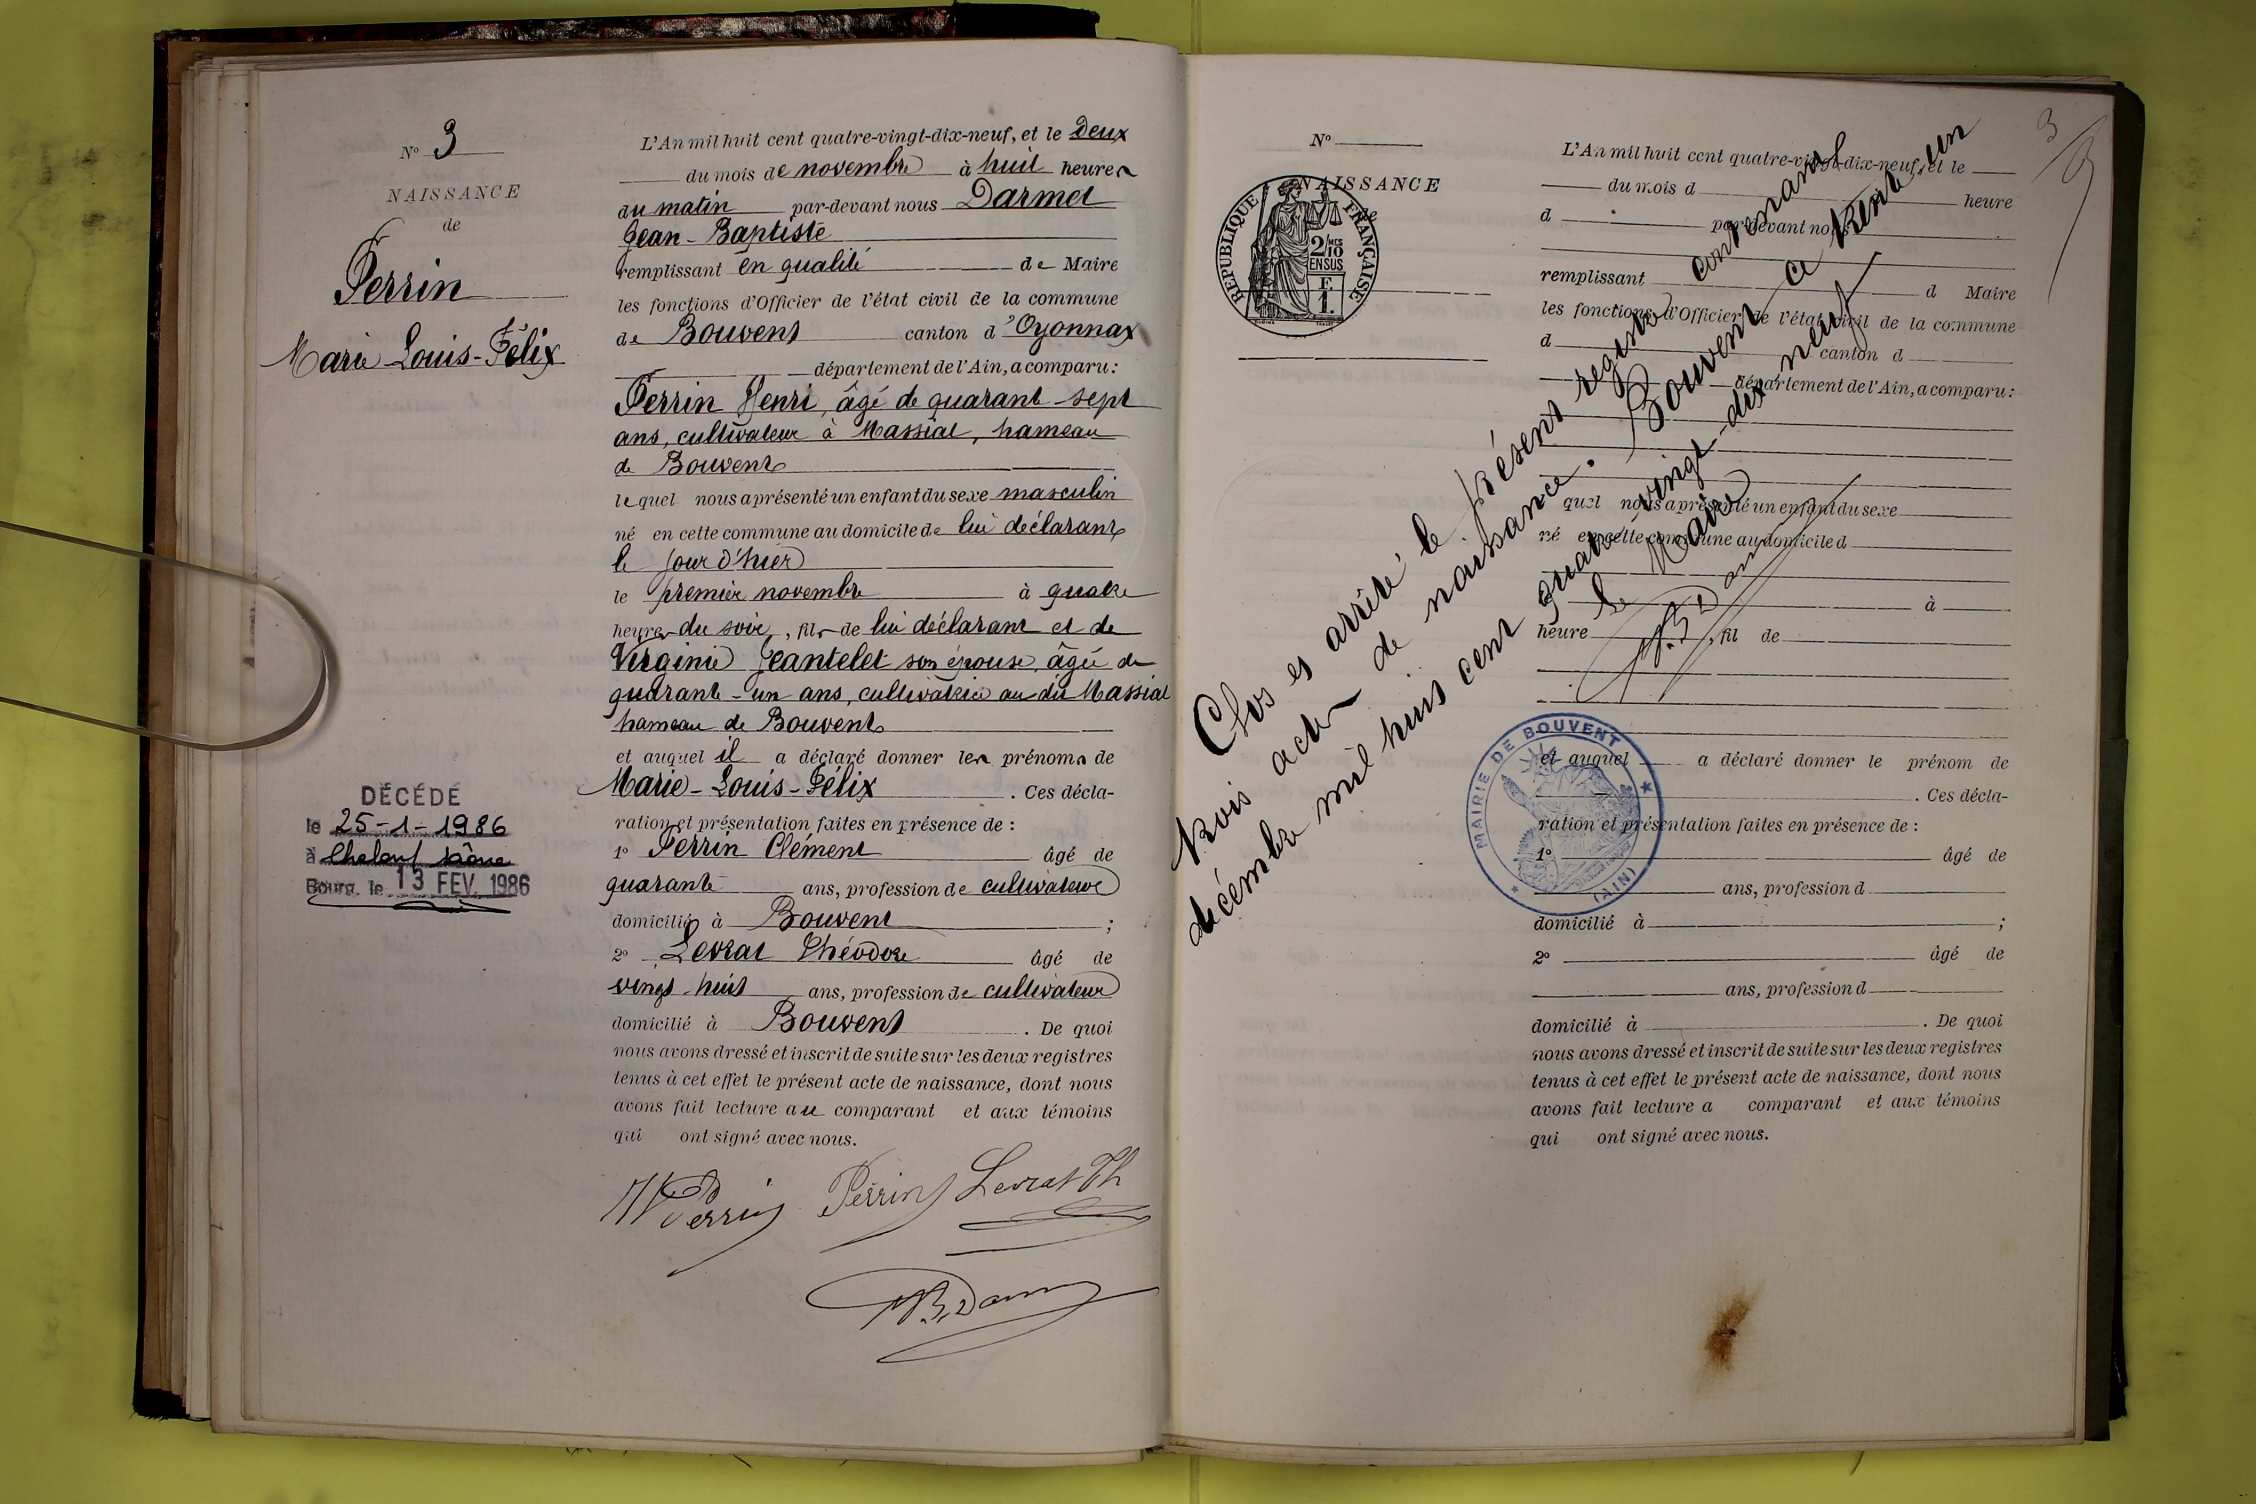 N° 3
NAISSANCE
de
Perrin
Marie Louis-Félix
DÉCÉDÉ
le 25-1-1986
à Chalon s/ Saône
Bourg, le 13 FEV. 1986
L'An mil huit cent quatre-vingt-dix-neuf, et le Deux
du mois de novembre à huit heures
du matin par-devant nous Darmet
Jean-Baptiste
remplissant en qualité de Maire
les fonctions d'Officier de l'état civil de la commune
de Bouvent canton d'Oyonnax
département de l'Ain, a comparu:
Perrin Henri, âgé de quarant-sept
ans, cultivateur à Massiat, hameau
de Bouvent
lequel nous a présenté un enfant du sexe masculin
né en cette commune au domicile de lui déclarant
le jour d'hier
le premier novembre à quatre
heures du soir, fils de lui déclarant et de
Virginie Jeantelet son épouse, âgée de
quarante-un ans, cultivatrice au dit Massiat
hameau de Bouvent
et auquel il a déclaré donner les prénoms de
Marie-Louis-Félix. Ces décla-
ration et présentation faites en présence de :
1° Perrin Clément âgé de
quarante ans, profession de cultivateur
domicilié à Bouvent ;
2° Levrat Théodore âgé de
vingt-huit ans, profession de cultivateur
domicilié à Bouvent. De quoi
nous avons dressé et inscrit de suite sur les deux registres
tenus à cet effet le présent acte de naissance, dont nous
avons fait lecture au comparant et aux témoins
qui ont signé avec nous.
H Perrin Perrin Levrat Th
N°
NAISSANCE
de
RÉPUBLIQUE FRANÇAISE
2/10
EN SUS
1.
3
L'An mil huit cent quatre-vingt-dix-neuf, et le
du mois d heure
d par-devant nous
remplissant d Maire
les fonctions d'Officier de l'état civil de la commune
d canton d
département de l'Ain, a comparu:
quel nous a présenté un enfant du sexe
né en cette commune au domicile d
à
heure, fil de
et auquel a déclaré donner le prénom de
. Ces décla-
ration et présentation faites en présence de :
1° âgé de
ans, profession d
domicilié à ;
2° âgé de
ans, profession d
domicilié à . De quoi
nous avons dressé et inscrit de suite sur les deux registres
tenus à cet effet le présent acte de naissance, dont nous
avons fait lecture a comparant et aux témoins
qui ont signé avec nous.
Clos et arrêté le présent registre contenant
trois actes de naissance. Bouvent ce trente un
décembre mil huit cent quatre vingt-dix neuf
Le Maire
MAIRIE DE BOUVENT
(AIN)